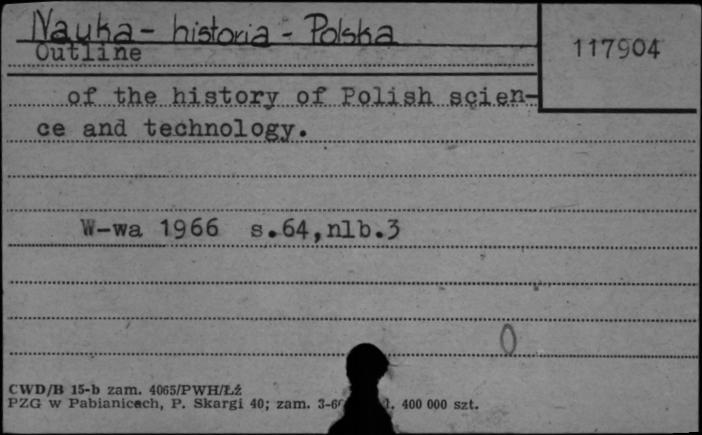 Nauka - historia - Polska
117904
Outline
of the history of Polish scien-
ce and technology.
W-wa 1966 s.64,nlb.3
0
CWD/B 15-b zam. 4065/PWH/Łź
PZG w Pabianicach, P. Skargi 40; zam. 400 000 szt.